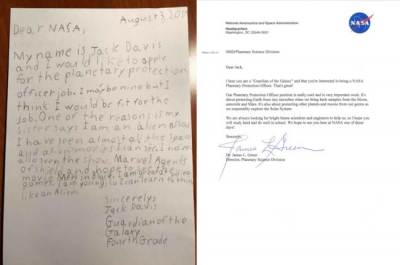 August 3, 201
Dear NASA,
My name is Jack Davis
and I would like to apply
for the planetary protection
officer job. I may be nine but I
think I would be fit for the
job. One of the reasons is my
sister says I am an alien also
I have seen almost all the space
and alien movies I can see. I have
also seen the show Marvel Agents
of Shield and hope to see the
movie Men in Black. I am great at video
games. I am young, so I can learn to think
like an Alien.
Sincerely,
Jack Davis
Guardian of the
Galaxy
Fourth Grade
National Aeronautics and Space Administration
Headquarters
Washington, DC 20546-0001
NASA
NASA/Planetary Science Division
Dear Jack,
I hear you are a "Guardian of the Galaxy" and that you're interested in being a NASA
Planetary Protection Officer. That's great!
Our Planetary Protection Officer position is really cool and is very important work. It's
about protecting Earth from tiny microbes when we bring back samples from the Moon,
asteroids and Mars. It's also about protecting other planets and moons from our germs as
we responsibly explore the Solar System.
We are always looking for bright future scientists and engineers to help us, so I hope you
will study hard and do well in school. We hope to see you here at NASA one of these
days!
Sincerely,
James L Green
Dr. James L. Green
Director, Planetary Science Division